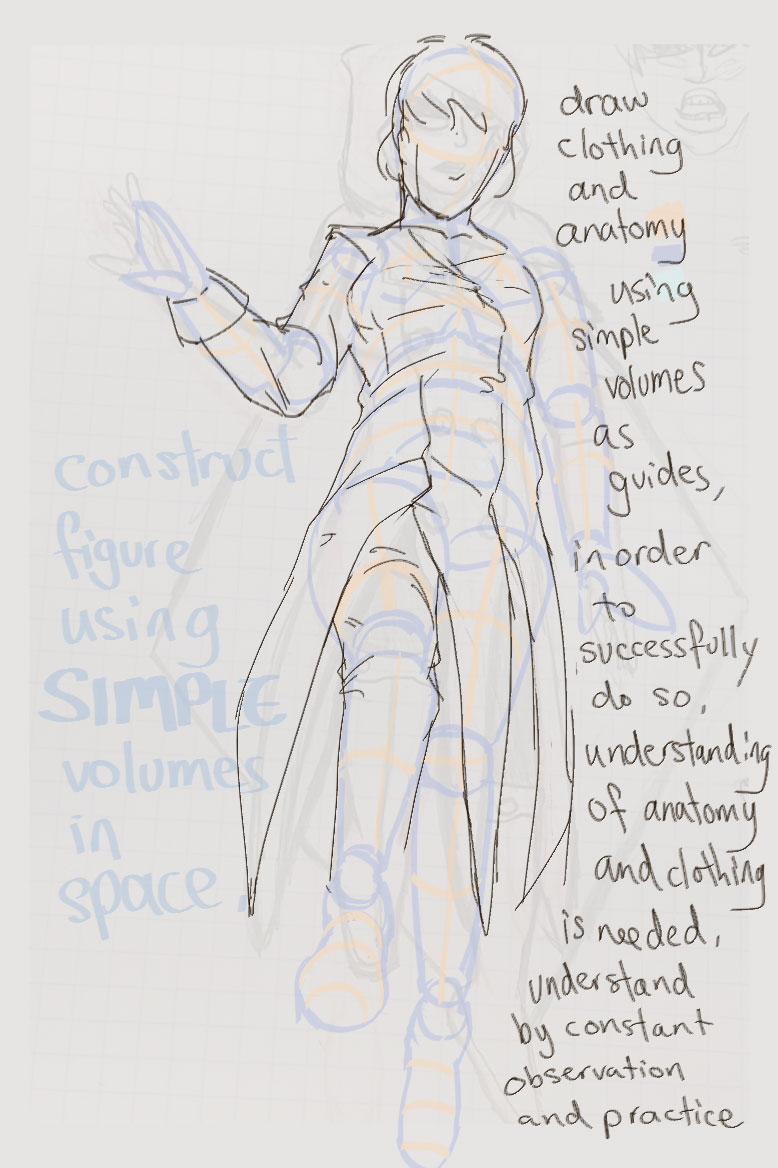 construct
figure
using
SIMPLE
volumes
in
space.
draw
clothing
and
anatomy
using
simple
volumes
as
guides,
in order
to
successfully
do so,
understanding
of anatomy
and clothing
is needed,
understand
by constant
observation
and practice